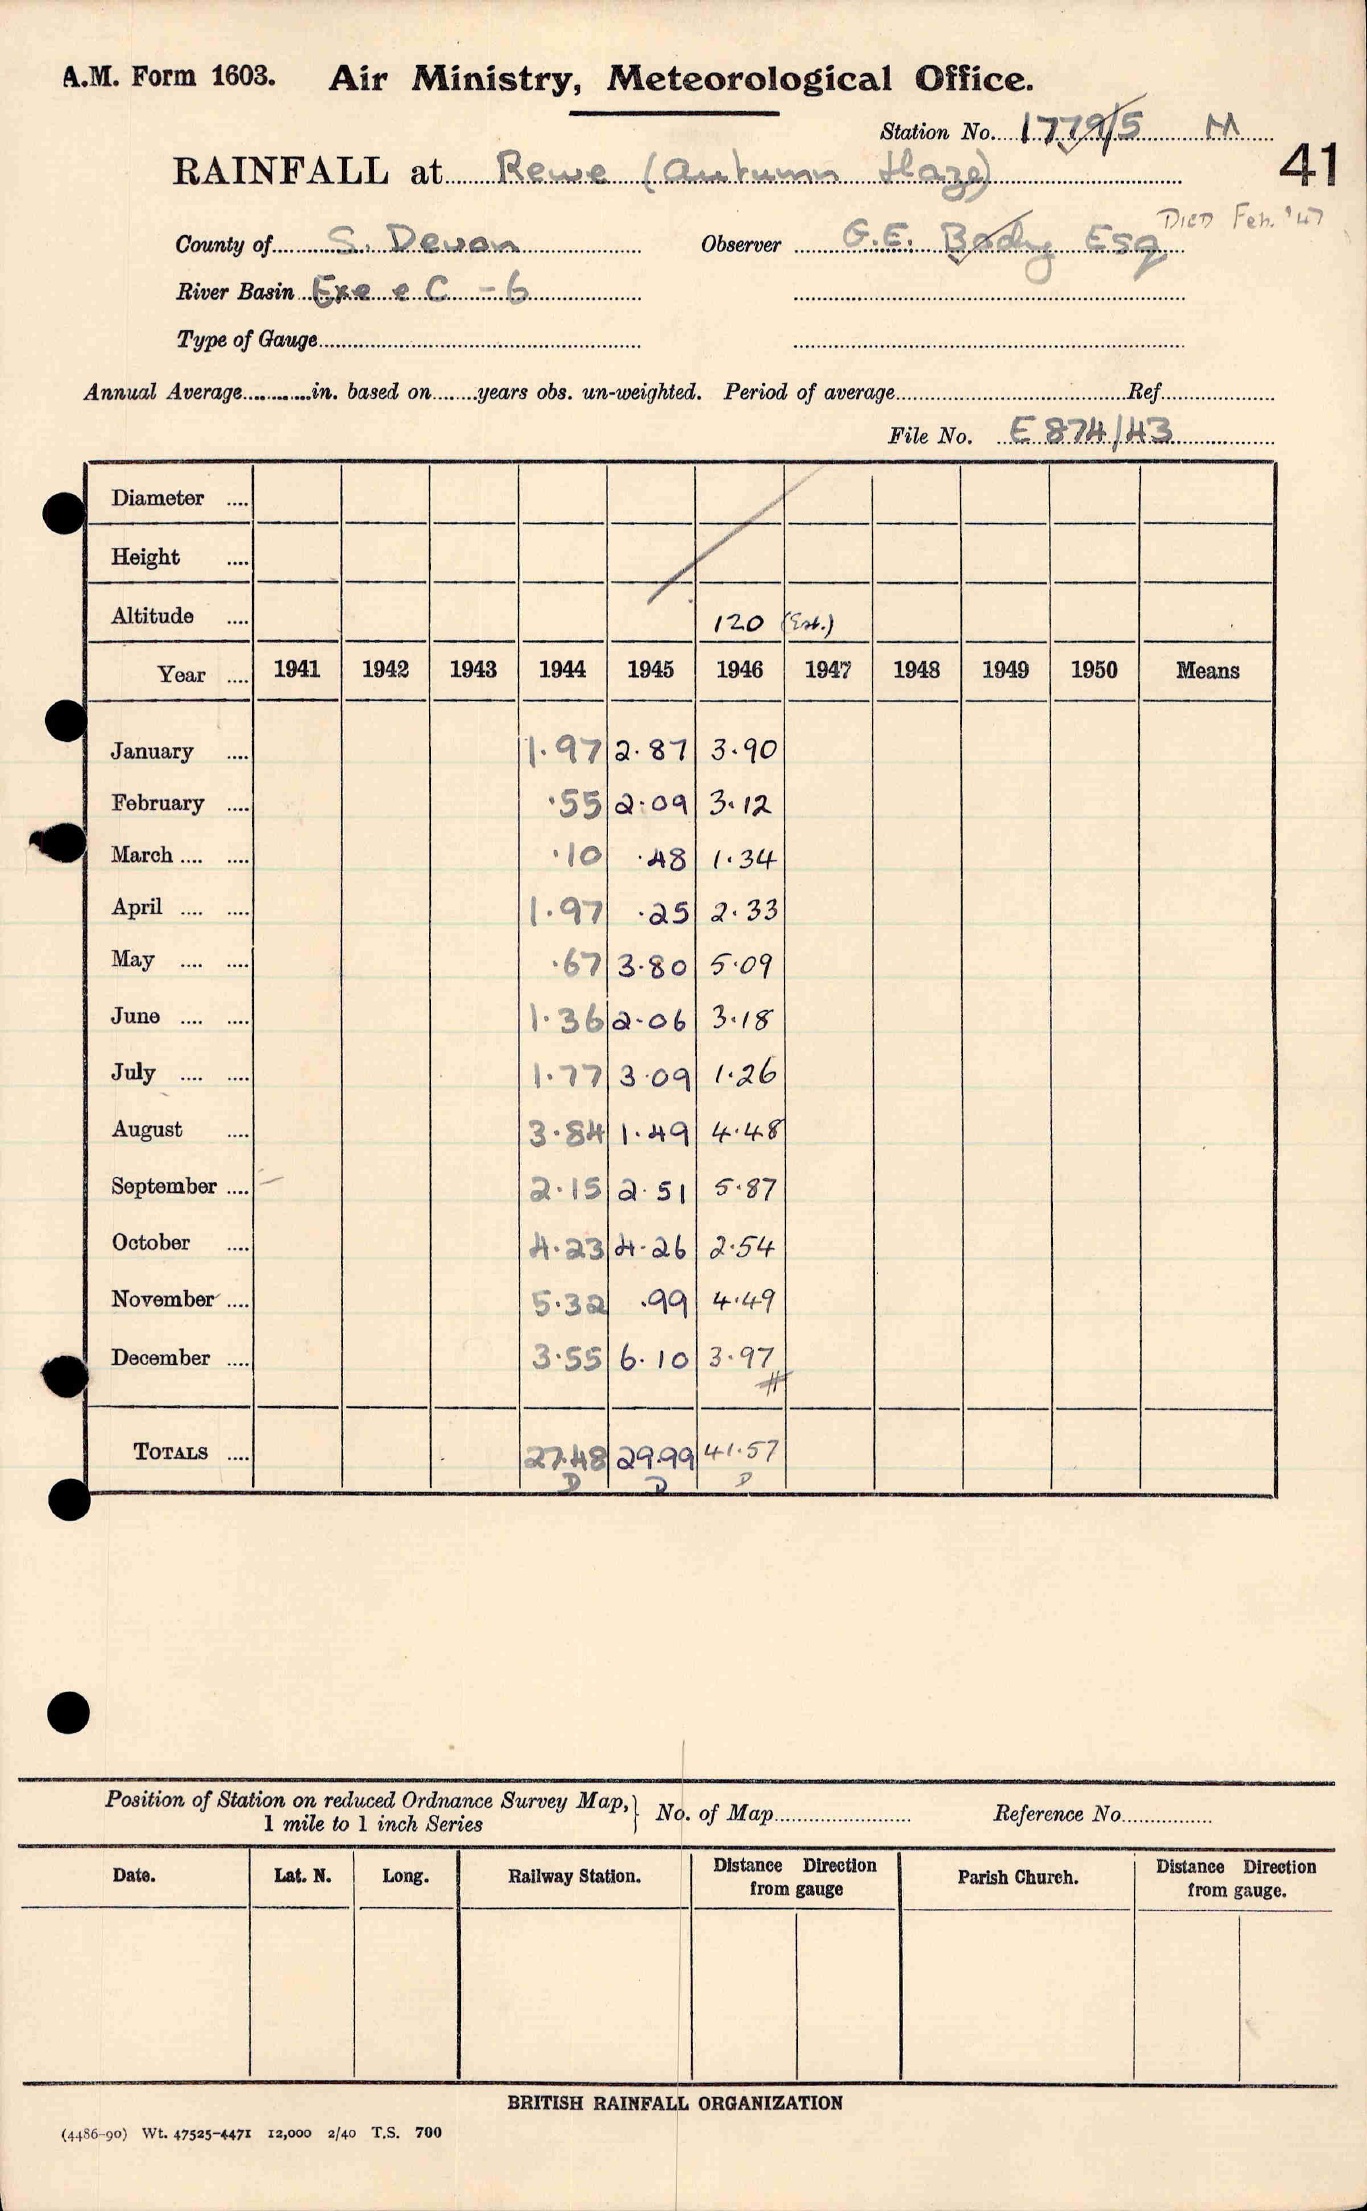 A.M. Form 1603. Air Ministry, Meteorological Office.
Station No. 1779/5 M
41
RAINFALL at Rewe (Autumn Haze)
Died Feb. '47
County of S. Devon Observer G.E. Body Esq
River Basin Exe e C - 6
Type of Gauge
Annual Average in. based on years obs. un-weighted. Period of average Ref
File No. E 874/43
Diameter
Height
Altitude 120 (Est.)
Year 1941 1942 1943 1944 1945 1946 1947 1948 1949 1950 Means
January 1.97 2.87 3.90
February .55 2.09 3.12
March .10 .48 1.34
April 1.97 .25 2.33
May .67 3.80 5.09
June 1.36 2.06 3.18
July 1.77 3.09 1.26
August 3.84 1.49 4.48
September 2.15 2.51 5.87
October 4.23 4.26 2.54
November 5.32 .99 4.49
December 3.55 6.10 3.97
Totals 27.48 29.99 41.57
D D D
Position of Station on reduced Ordnance Survey Map, 1 mile to 1 inch Series } No. of Map Reference No.
Date. Lat. N. Long. Railway Station. Distance Direction from gauge Parish Church. Distance Direction from gauge.
BRITISH RAINFALL ORGANIZATION
(4486-90) Wt. 47525-4471 12,000 2/40 T.S. 700